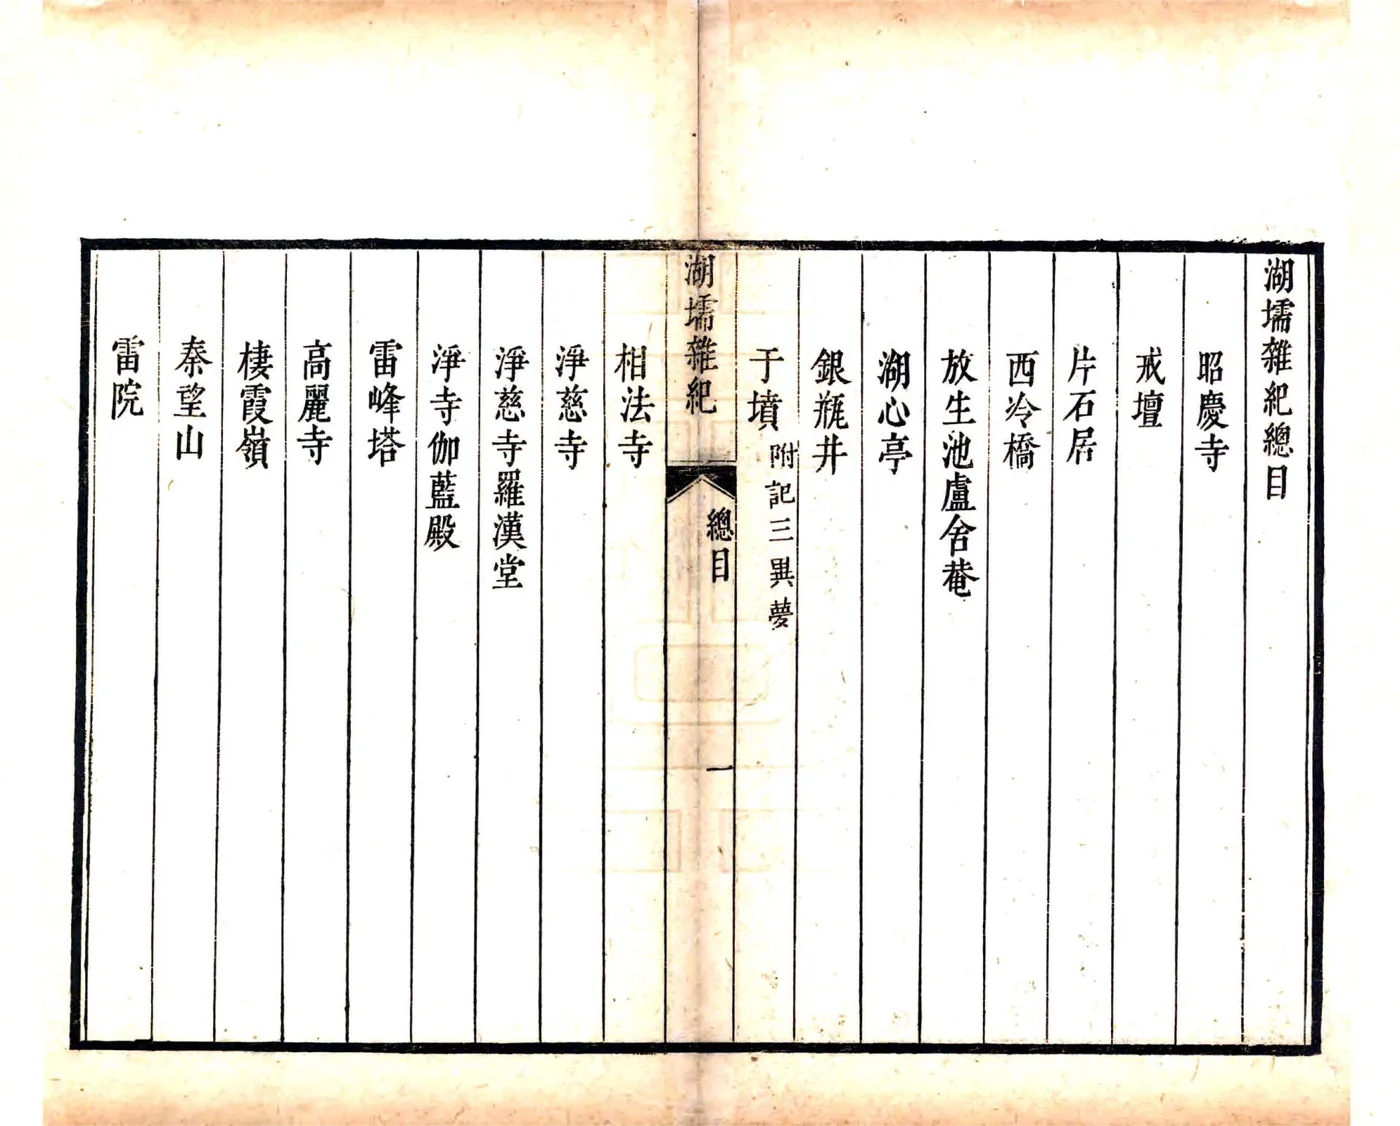 湖壖雜紀總目
昭慶寺
戒壇
片石居
西泠橋
放生池盧舍菴
湖心亭
銀瓶井
于墳 附記三異夢
湖壖雜紀
總目
一
相法寺
淨慈寺
淨慈寺羅漢堂
淨寺伽藍殿
雷峰塔
高麗寺
棲霞嶺
秦望山
雷院